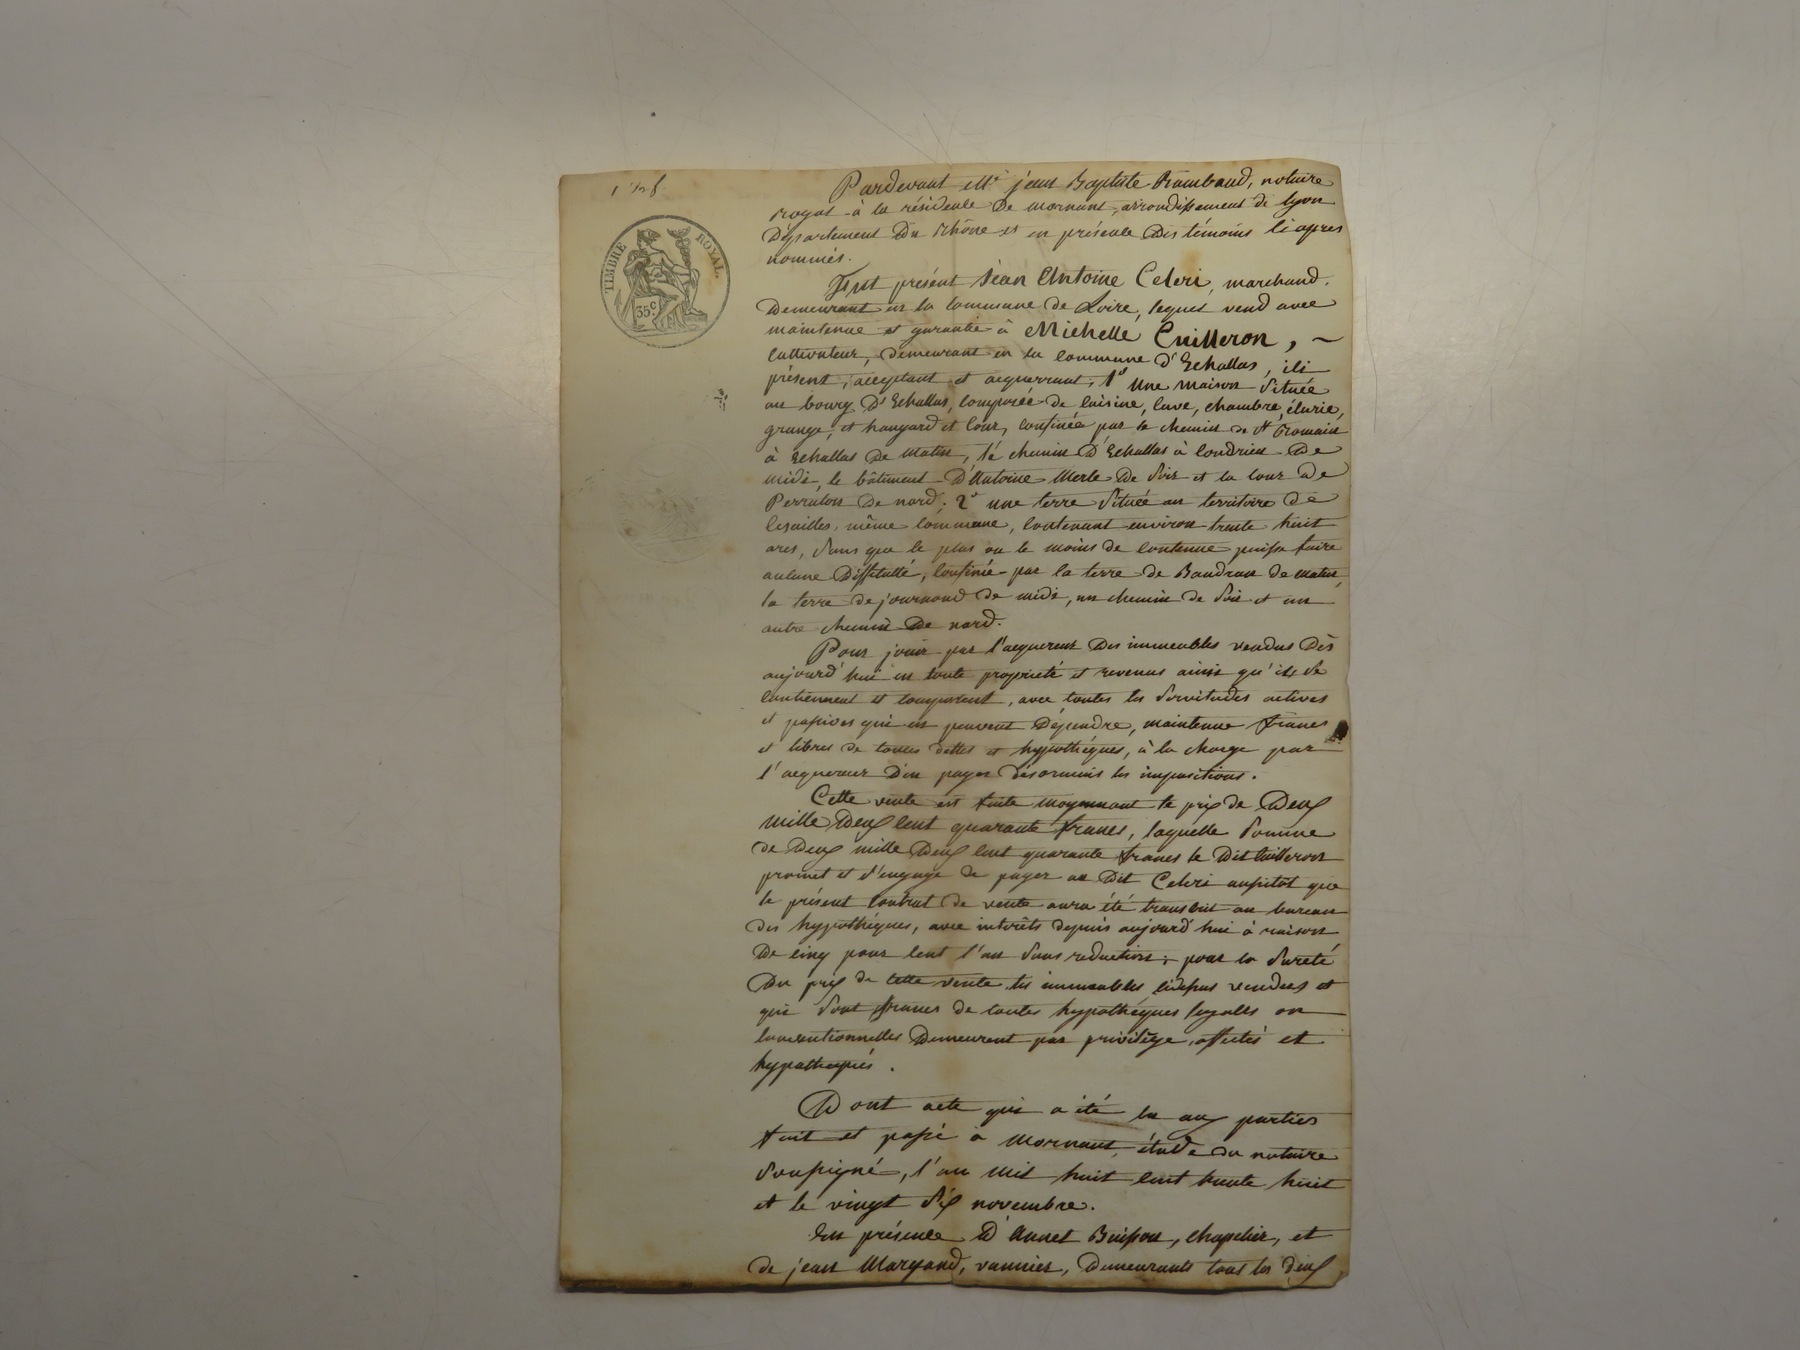 TIMBRE ROYAL.
35c
Pardevant Me jean Baptiste Rambaud, notaire
royal à la résidence De mornant, arrondissement de lyon
Département Du Rhône et en présence Des témoins ci après
nommés.
Fut présent Jean Antoine Celeri, marchand.
Demeurant en la commune de Loire, lequel vend avec
maintenue et garantie à Michelle Cuilleron, ~
cultivateur, demeurant en la commune d'Echallas, ici
présent, acceptant et acquerrant, 1° Une maison située
au bourg D'Echallas, composée de cuisine, cave, chambre, écurie,
grange, et hangard et cour, confinée par le chemin de St Romain
à Echallas De matin, le chemin D'Echallas à Condrieu De
midi, le bâtiment D'Antoine Merle De soir et la cour De
Perraton De nord; 2° une terre située au territoire de
même commune, contenant environ trente huit
ares, sans que le plus ou le moins de contenue puisse faire
aucune Difficulté, confinée par la terre de Baudran de matin,
la terre de journoud de midi, un chemin de soir et un
autre chemin De nord.
Pour jouir par l'acquereur Des immeubles vendus Dès
aujourd'hui en toute propriété et revenus ainsi qu'ils se
contiennent et comportent, avec toutes les servitudes actives
et passives qui en peuvent Dépendre, maintenus francs
et libres de toutes dettes et hypothéques, à la charge par
l'acquereur D'en payer désormais les impositions.
Cette vente est faite moyennant le prix de Deux
mille Deux cent quarante francs, laquelle somme
de Deux mille Deux cent quarante francs le Dit Cuilleron
promet et s'engage de payer au Dit Celeri aussitôt que
le présent contrat de vente aura été transcrit au bureau
des hypothéques, avec intérêts depuis aujourd'hui à raison
De cinq pour cent l'an sans reduction; pour la sureté
Du prix de cette vente les immeubles cidessus vendus et
qui sont francs de toutes hypothéques legalles ou
conventionnelles Demeurent par privilège, affectés et
hypothéqués.
Dont acte qui a été lu aux parties
fait et passé à Mornant, étude du notaire
soussigné, l'an mil huit cent trente huit
et le vingt six novembre.
En présence D'Annet Buisson, chapelier, et
de jean Margand, vannier, Demeurants tous les deux